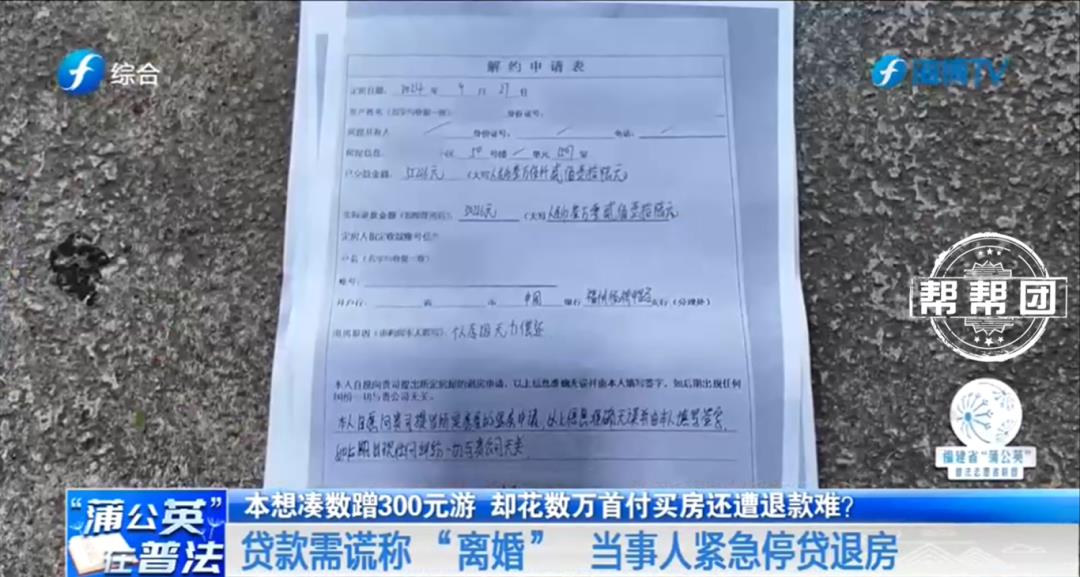 综合
海博TV
解约申请表
定房日期：2024 年 9 月 27 日
客户姓名（名字与收据一致） 身份证号：
房屋共有人 / 身份证号： / 电话： /
房屋信息： 号楼 单元 室
已交款金额： （大写
实际退款金额
定房人指定收款账号信息
户名（名字与收据一致）
账号：
开户行： 省 市 中国 银行 支行（分理处）
退房原因（由购房本人填写） 个人原因无力偿还
本人自愿向贵司提出所定房屋的退房申请，以上信息准确无误并由本人填写签字，如后期出现任何
纠纷一切与贵公司无关。
本人自愿向贵司提出所定房屋的退房申请，以上信息准确无误并由本人填写签字，
如后期出现任何纠纷一切与贵公司无关
帮帮团
福建省“蒲公英”
普法志愿者联盟
“蒲公英”
在普法
本想凑数蹭300元游 却花数万首付买房还遭退款难？
贷款需谎称“离婚” 当事人紧急停贷退房